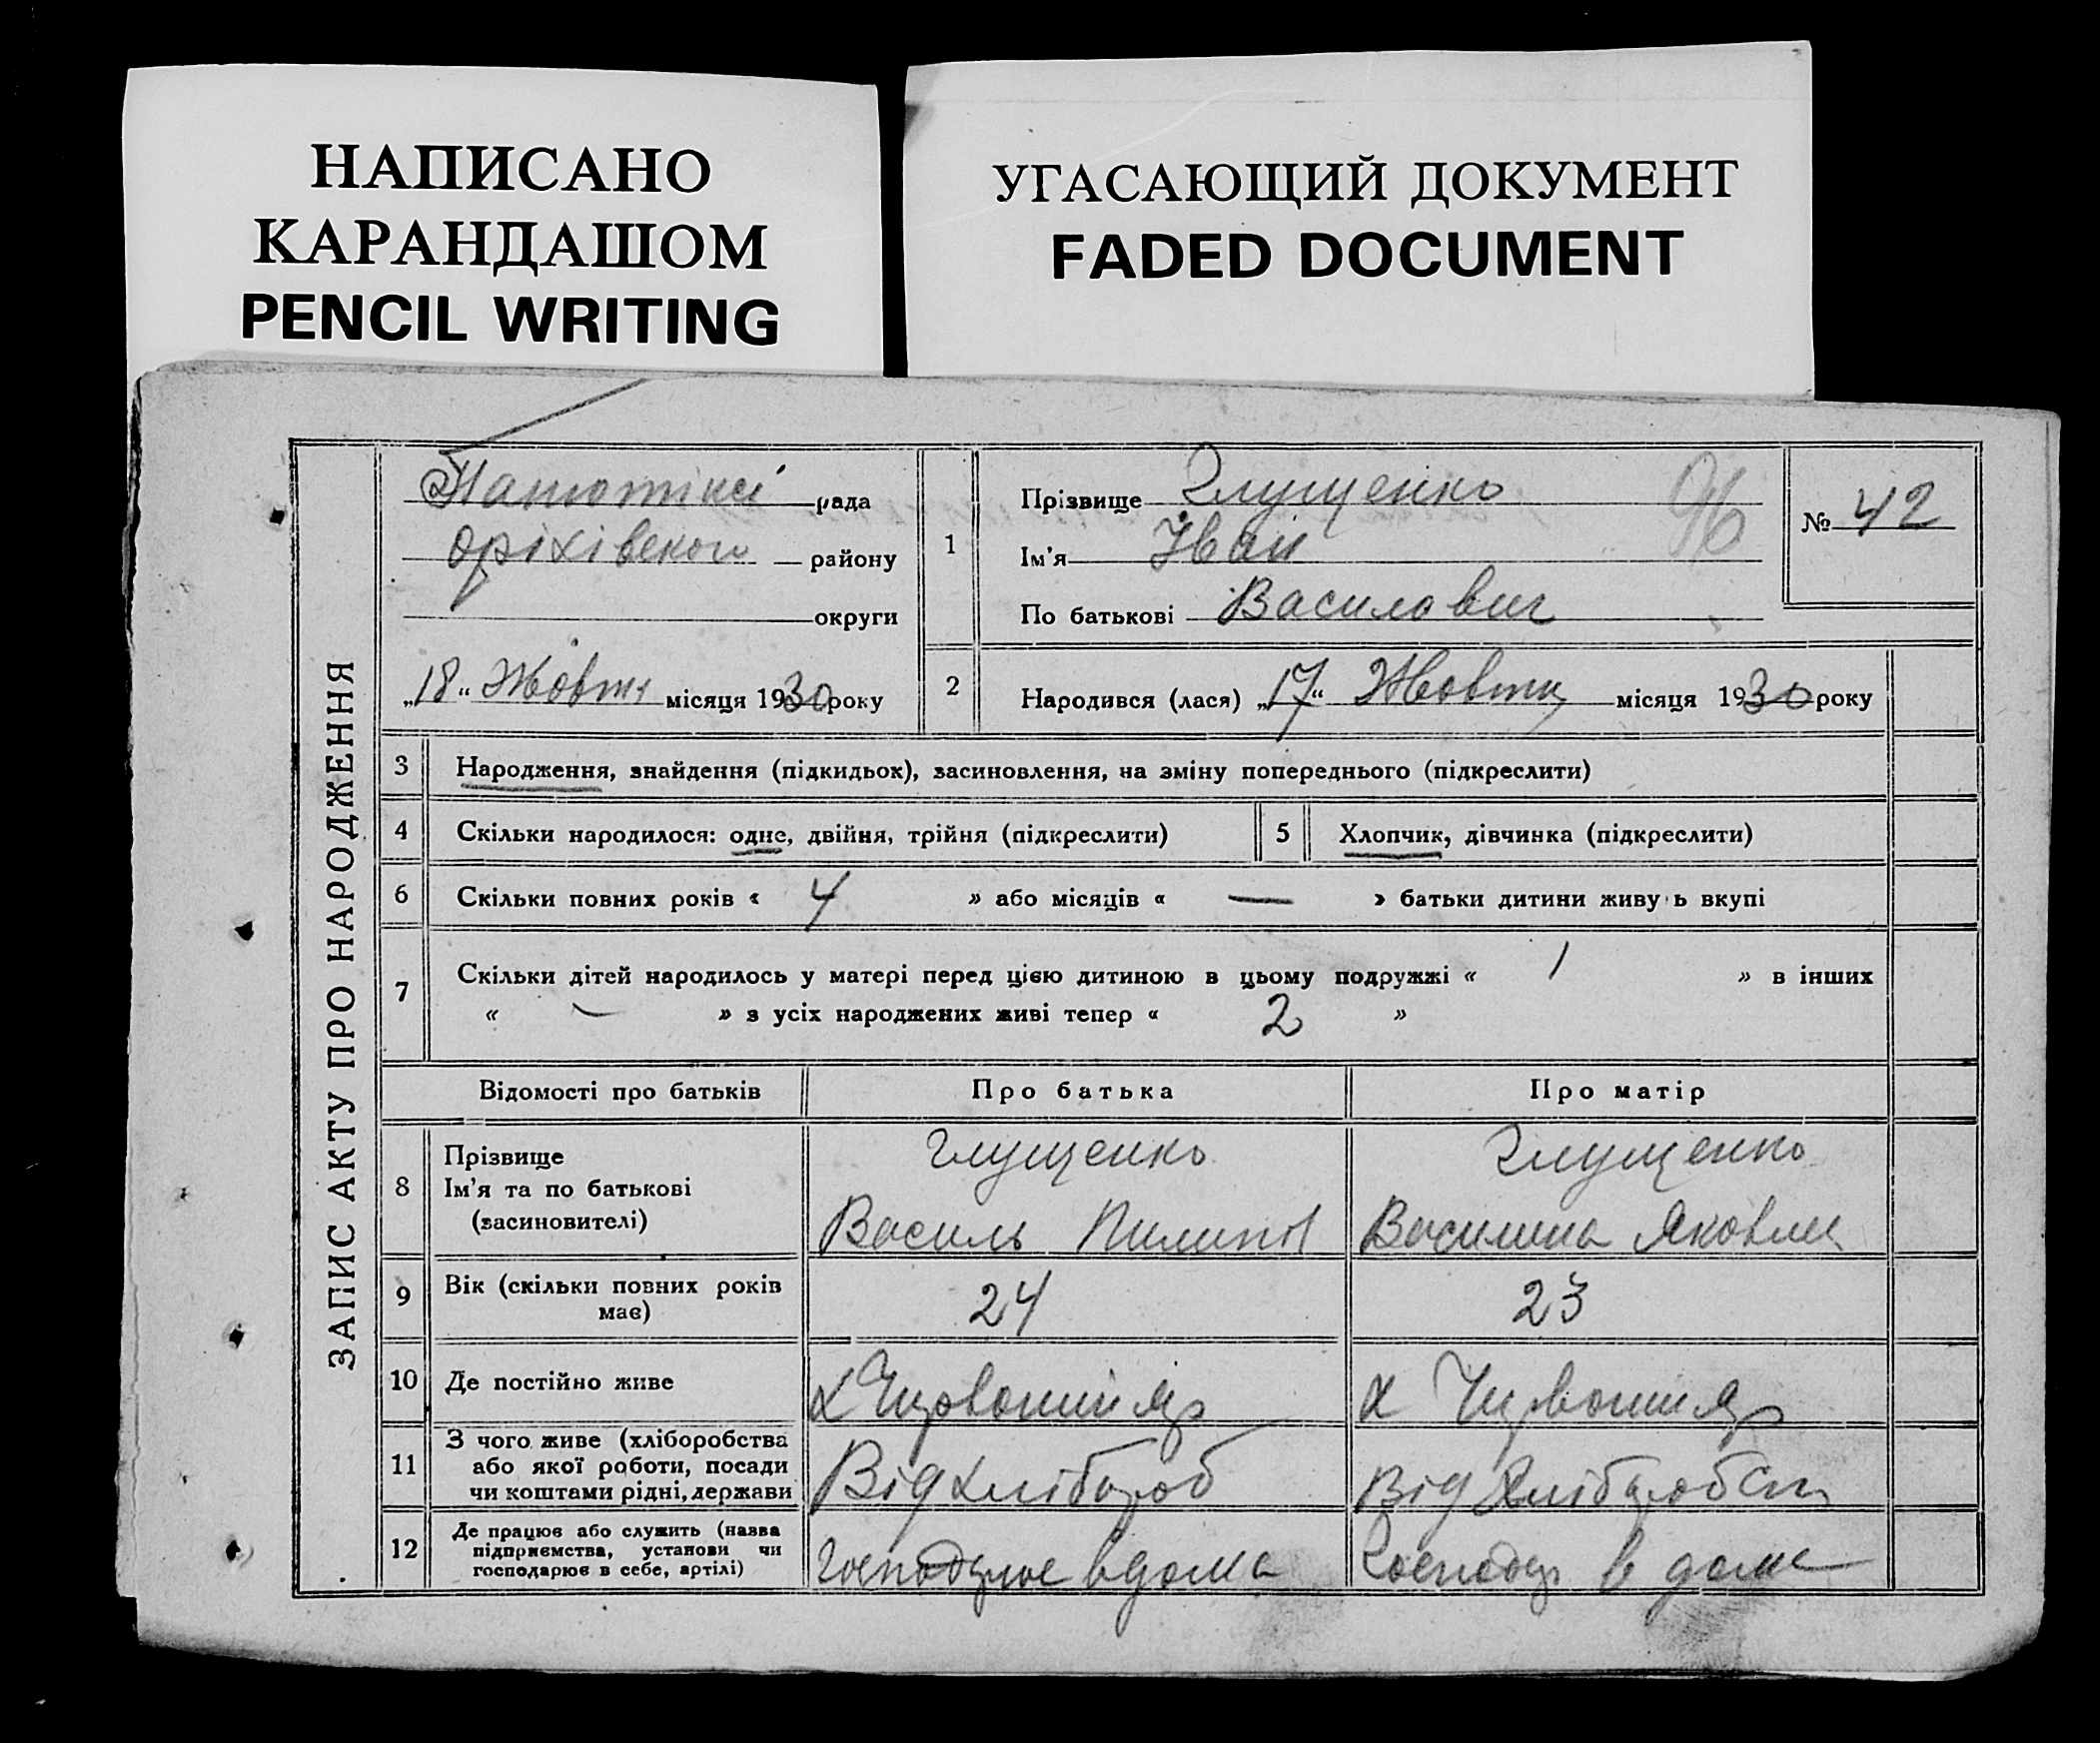 НАПИСАНО
КАРАНДАШОМ
PENCIL WRITING
УГАСАЮЩИЙ ДОКУМЕНТ
FADED DOCUMENT
ЗАПИС АКТУ ПРО НАРОДЖЕННЯ
рада
Оріхівського району
округи
„18“ Жовтн місяця 1930 року
1
Прізвище Глущенко
96
Ім'я Іван
По батькові Василович
№ 42
2
Народився (лася) „17“ Жовтня місяця 1930 року
3 Народження, знайдення (підкидьох), засиновлення, на зміну попереднього (підкреслити)
4 Скільки народилося: одне, двійня, трійня (підкреслити) 5 Хлопчик, дівчинка (підкреслити)
6 Скільки повних років « 4 » або місяців « — » батьки дитини живуть вкупі
7 Скільки дітей народилось у матері перед цією дитиною в цьому подружжі « 1 » в інших
« — » з усіх народжених живі тепер « 2 »
Відомості про батьків Про батька Про матір
8 Прізвище Глущенко Глущенко
Ім'я та по батькові
(засиновителі) Василь Пилипов Василина Яковл
9 Вік (скільки повних років
має) 24 23
10 Де постійно живе х Червоний Яр х Червоний Яр
11 З чого живе (хліборобства
або якої роботи, посади
чи коштами рідні, держави Від хлібороб Від хліборобст
12 Де працює або служить (назва
підприємства, установи чи
господарює в себе, артілі) в дома в доме